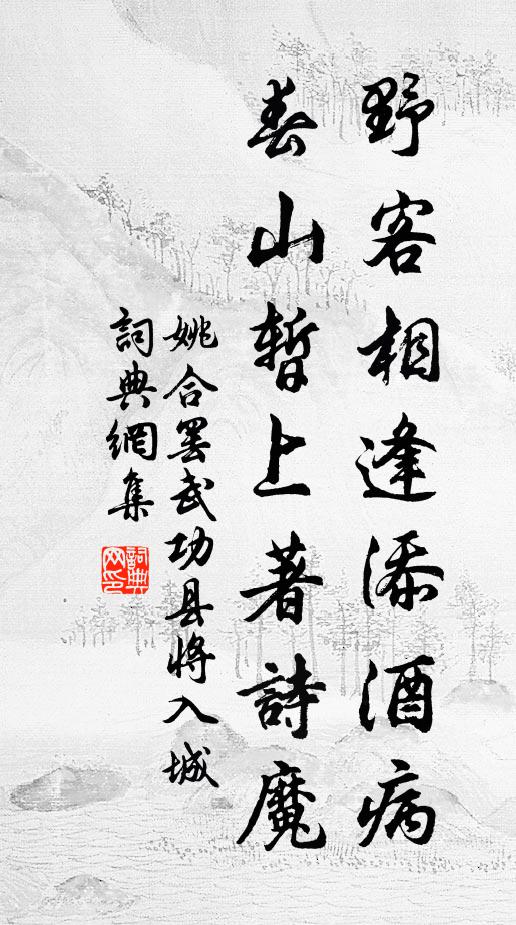 野客相逢添酒病
春山暫上著詩魔
姚合罢武功县将入城
詞典網集
詞典網印